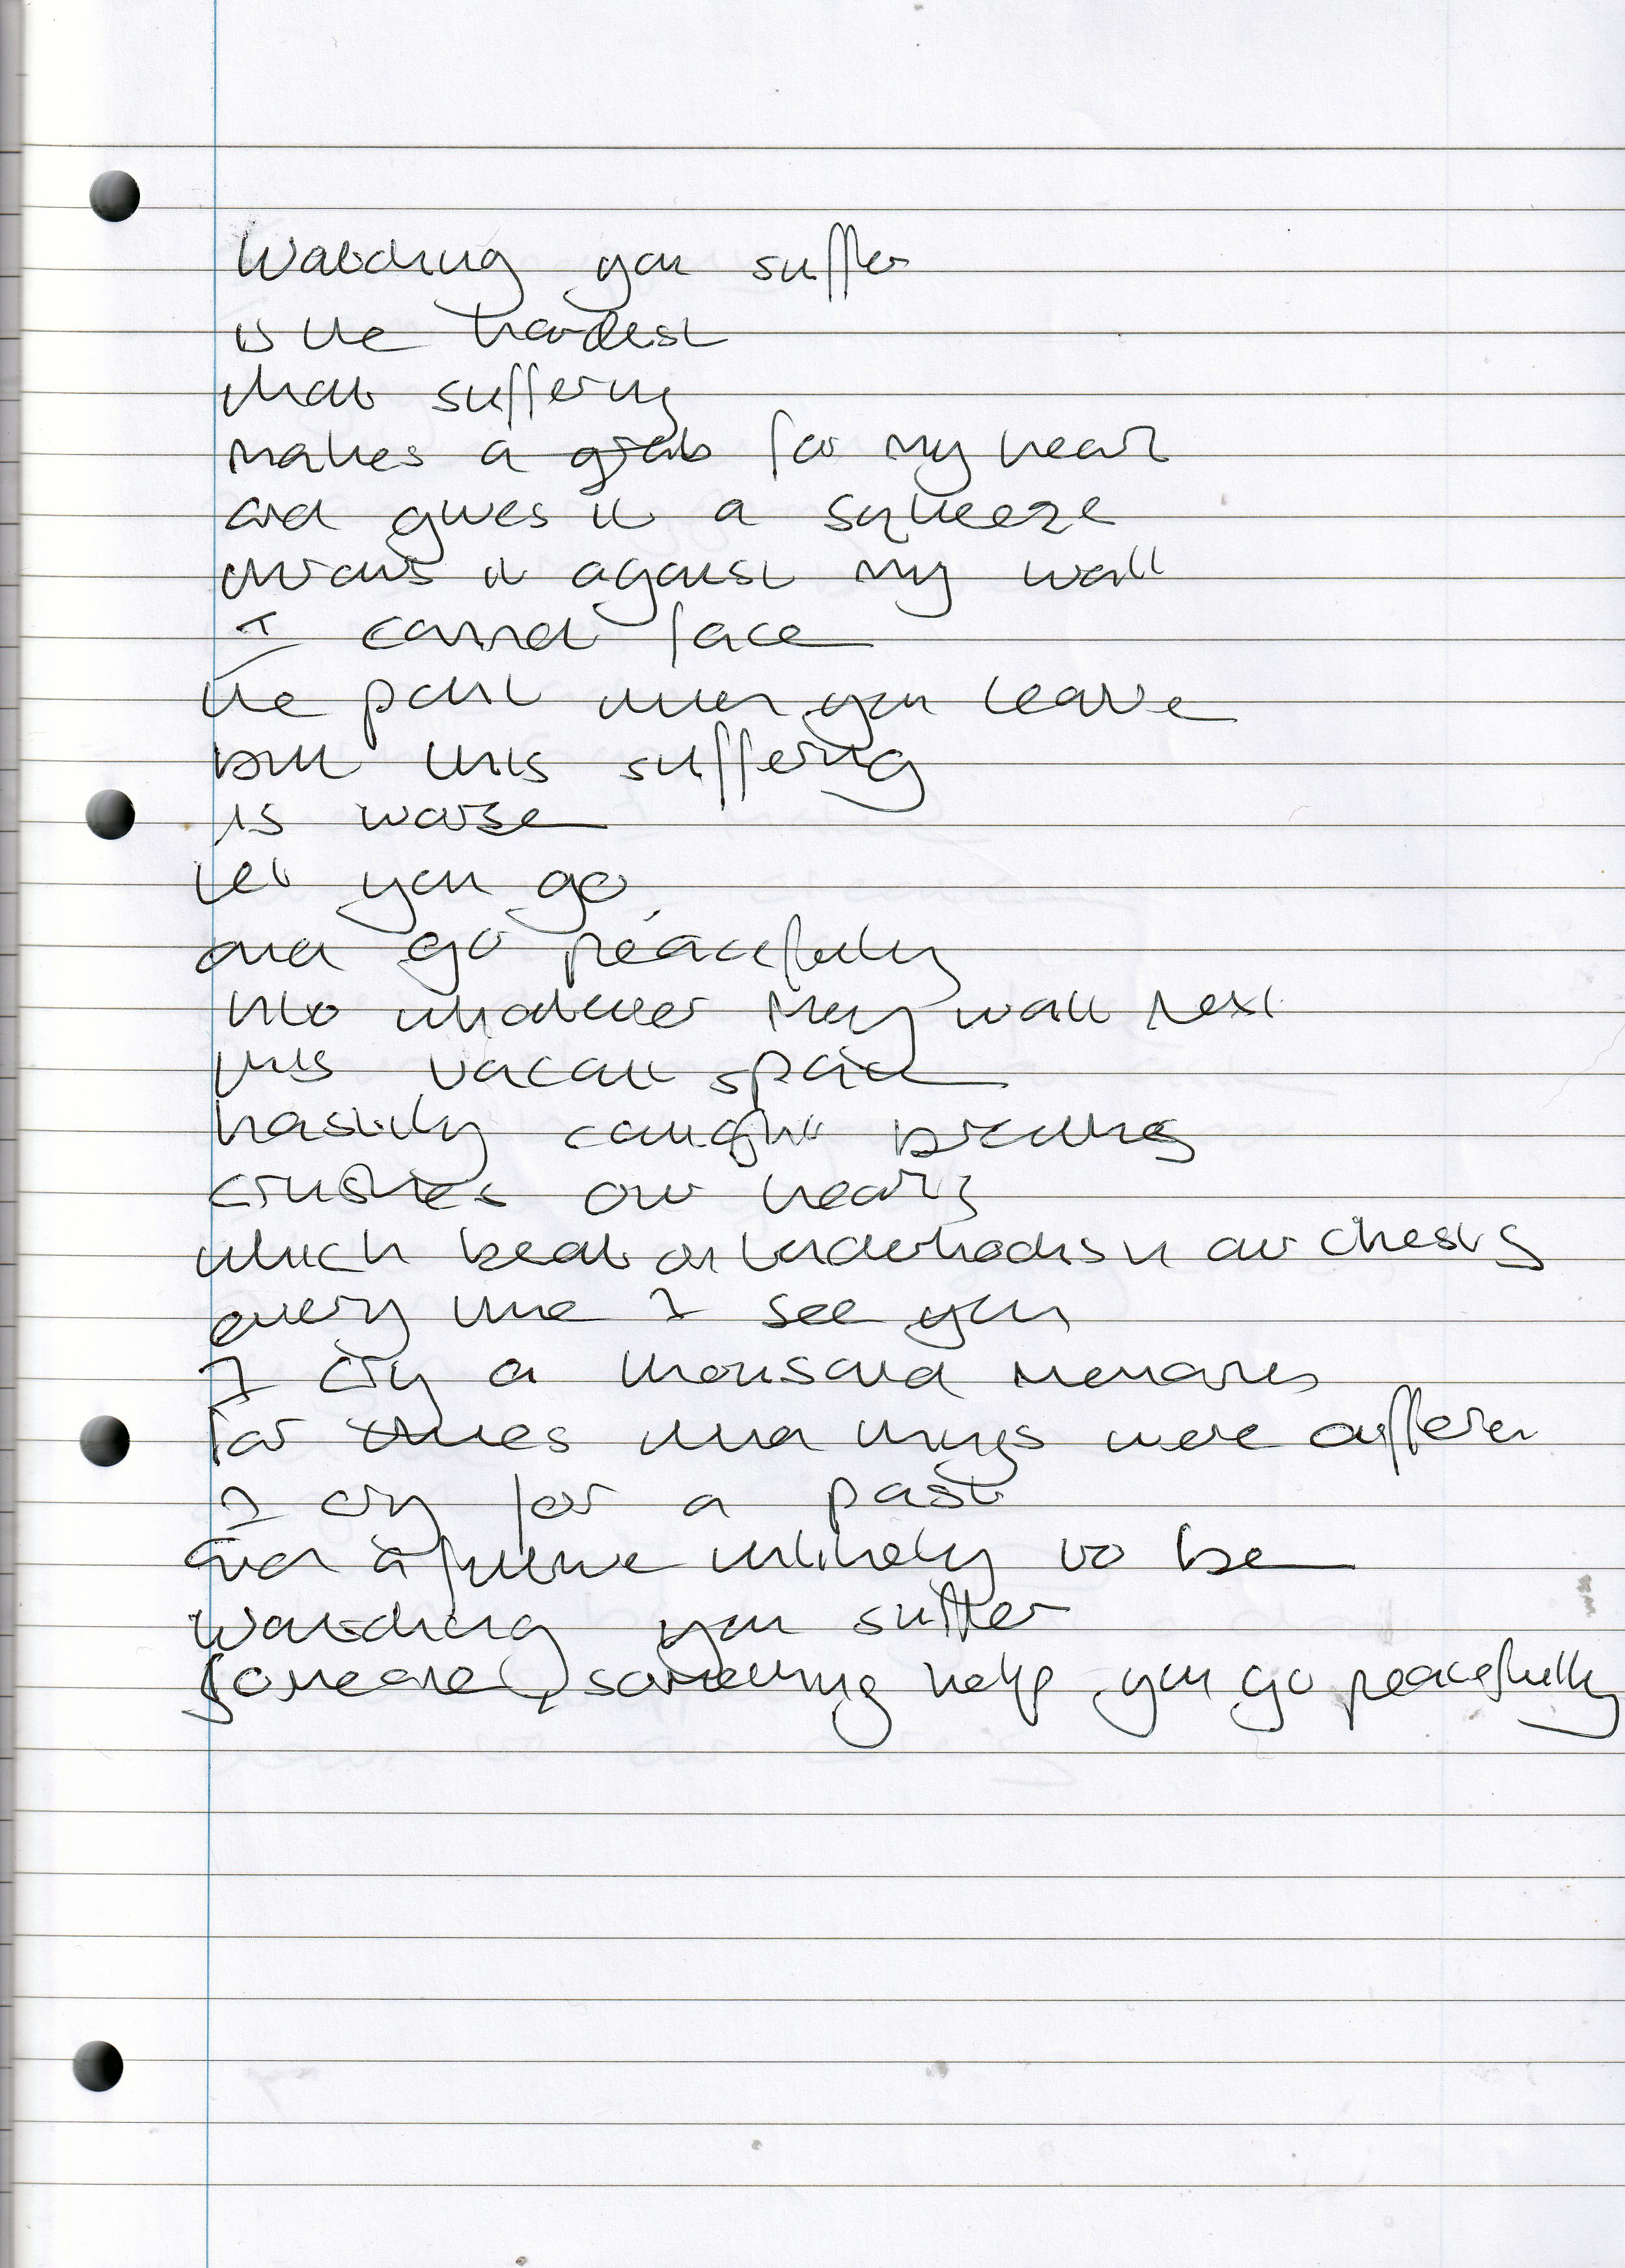 Watching you suffer
is the hardest
that suffering
makes a grab for my heart
and gives it a squeeze
throws it against my wall
I cannot face
the point when you leave
but this suffering
is worse
let you go,
and go peacefully
into whatever may wait next
this vacant space
hastily caught breaths
crushes our hearts
which beat on in our chests
every time I see you
I cry a thousand memories
for times when things were different
I cry for a past
and a future unlikely to be
watching you suffer
someone, something help you go peacefully